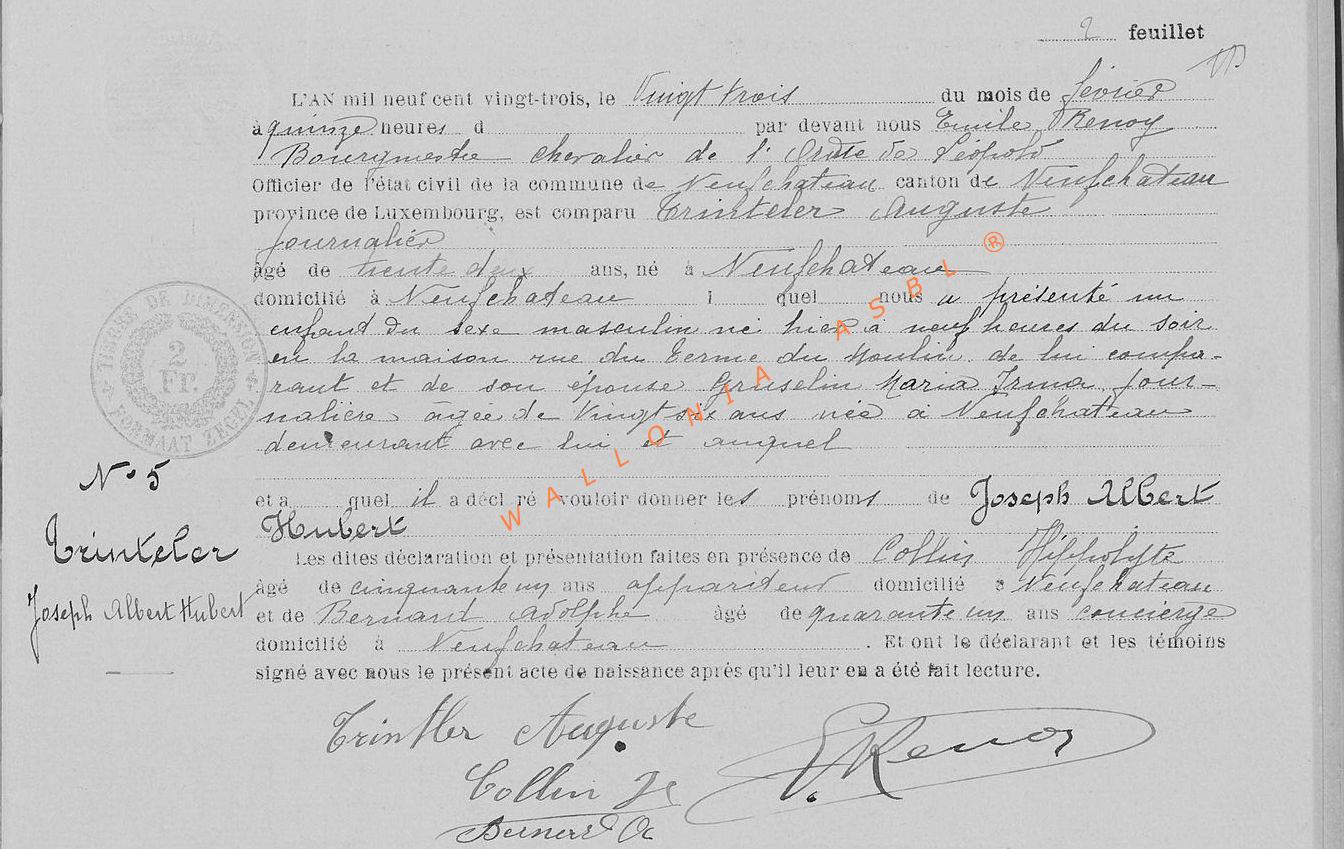 2 feuillet
L'AN mil neuf cent vingt-trois, le Vingt trois du mois de février
à quinze heures d par devant nous Emile Renoy
Bourgmestre chevalier de l'Ordre de Léopold
Officier de l'état civil de la commune de Neufchateau canton de Neufchateau
province de Luxembourg, est comparu Trinteler Auguste
journalier
âgé de trente deux ans, né à Neufchateau
domicilié à Neufchateau l quel nous a présenté un
enfant du sexe masculin né hier à neuf heures du soir
en la maison rue du Terme du Moulin de lui compa-
rant et de son épouse Gruselin Maria Irma jour-
nalière âgée de Vingt six ans née à Neufchateau
demeurant avec lui et auquel
et a quel il a décl ré vouloir donner les prénoms de Joseph Albert
Hubert
Les dites déclaration et présentation faites en présence de Collin Hippolyte
âgé de cinquante un ans appariteur domicilié à Neufchateau
et de Bernard Adolphe âgé de quarante un ans concierge
domicilié à Neufchateau. Et ont le déclarant et les témoins
signé avec nous le présent acte de naissance après qu'il leur en a été fait lecture.
Trintler Auguste
E. Renoy
Collin H
Bernard A
N° 5
Trinteler
Joseph Albert Hubert
TIMBRE DE DIMENSION
2 Fr.
FORMAAT ZEGEL
WALLONIA ASBL ®